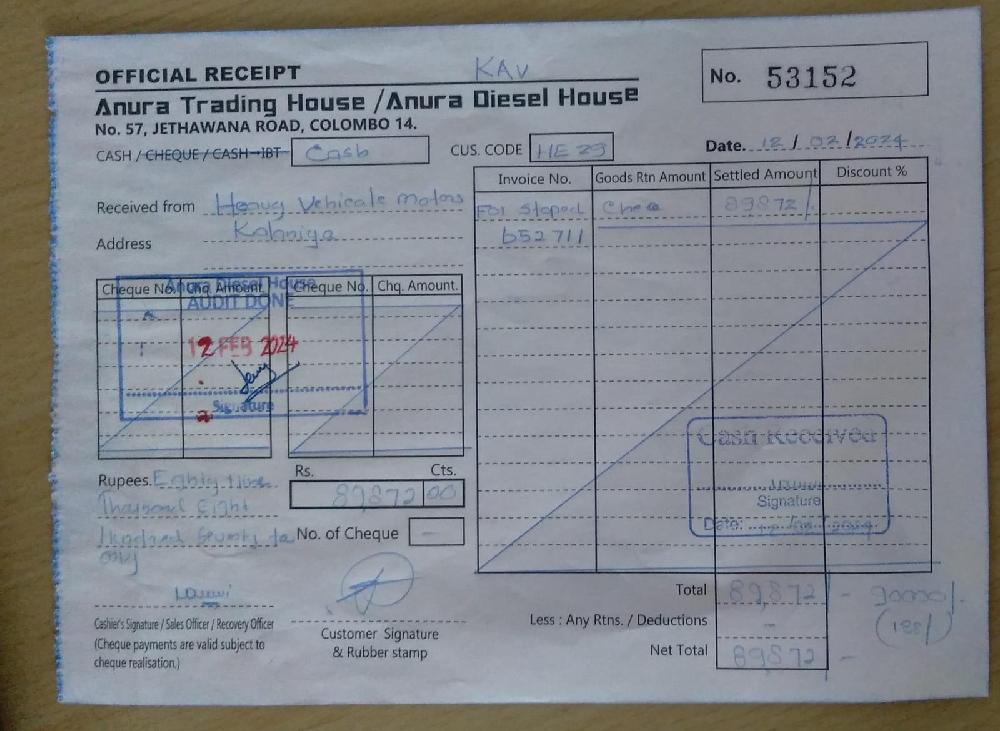 KAV
OFFICIAL RECEIPT
No. 53152
Anura Trading House /Anura Diesel House
No. 57, JETHAWANA ROAD, COLOMBO 14.
CASH / CHEQUE / CASH-IBT Cash
CUS. CODE HE 29
Date. 12 / 02 / 2024
Invoice No. Goods Rtn Amount Settled Amount Discount %
Received from Heavy Vehicale Motors
Address Kalaniya
For Stoped Cheq 89872/.
652711
Cheque No. Chq. Amount. Cheque No. Chq. Amount.
Anura Diesel House
AUDIT DONE
12 FEB 2024
Signature
Cash Received
Signature
Date: 12/02/2024
Rupees. Eighty Nine
Thausand Eight
Hundred Seventy two
only
Rs. Cts.
89872 00
No. of Cheque -
Cashier's Signature / Sales Officer / Recovery Officer
(Cheque payments are valid subject to
cheque realisation.)
Customer Signature
& Rubber stamp
Total 89,872/- 90000/.
Less : Any Rtns. / Deductions - (128/)
Net Total 89872 -